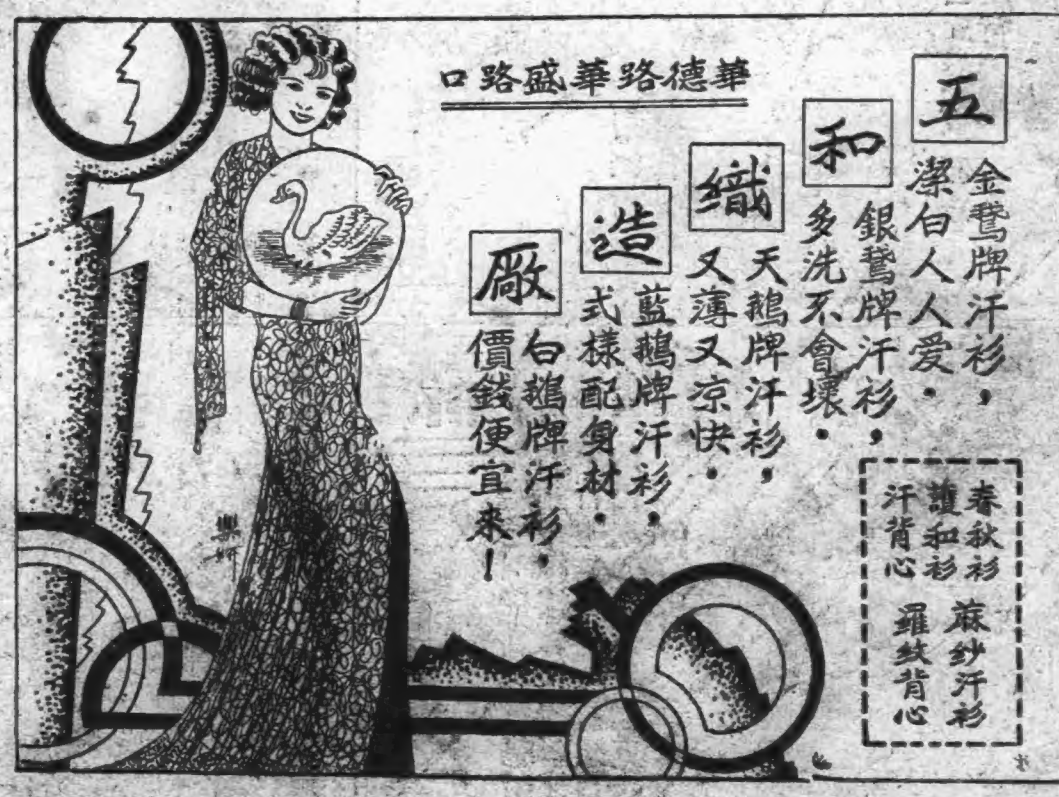 華德路華盛路口
五和織造廠
金鵞牌汗衫，
潔白人人愛．
銀鵞牌汗衫，
多洗不會壞．
天鵝牌汗衫，
又薄又凉快．
藍鵝牌汗衫，
式樣配身材．
白鵝牌汗衫，
價錢便宜來！
春秋衫
護和衫
汗背心
蔴紗汗衫
羅紋背心